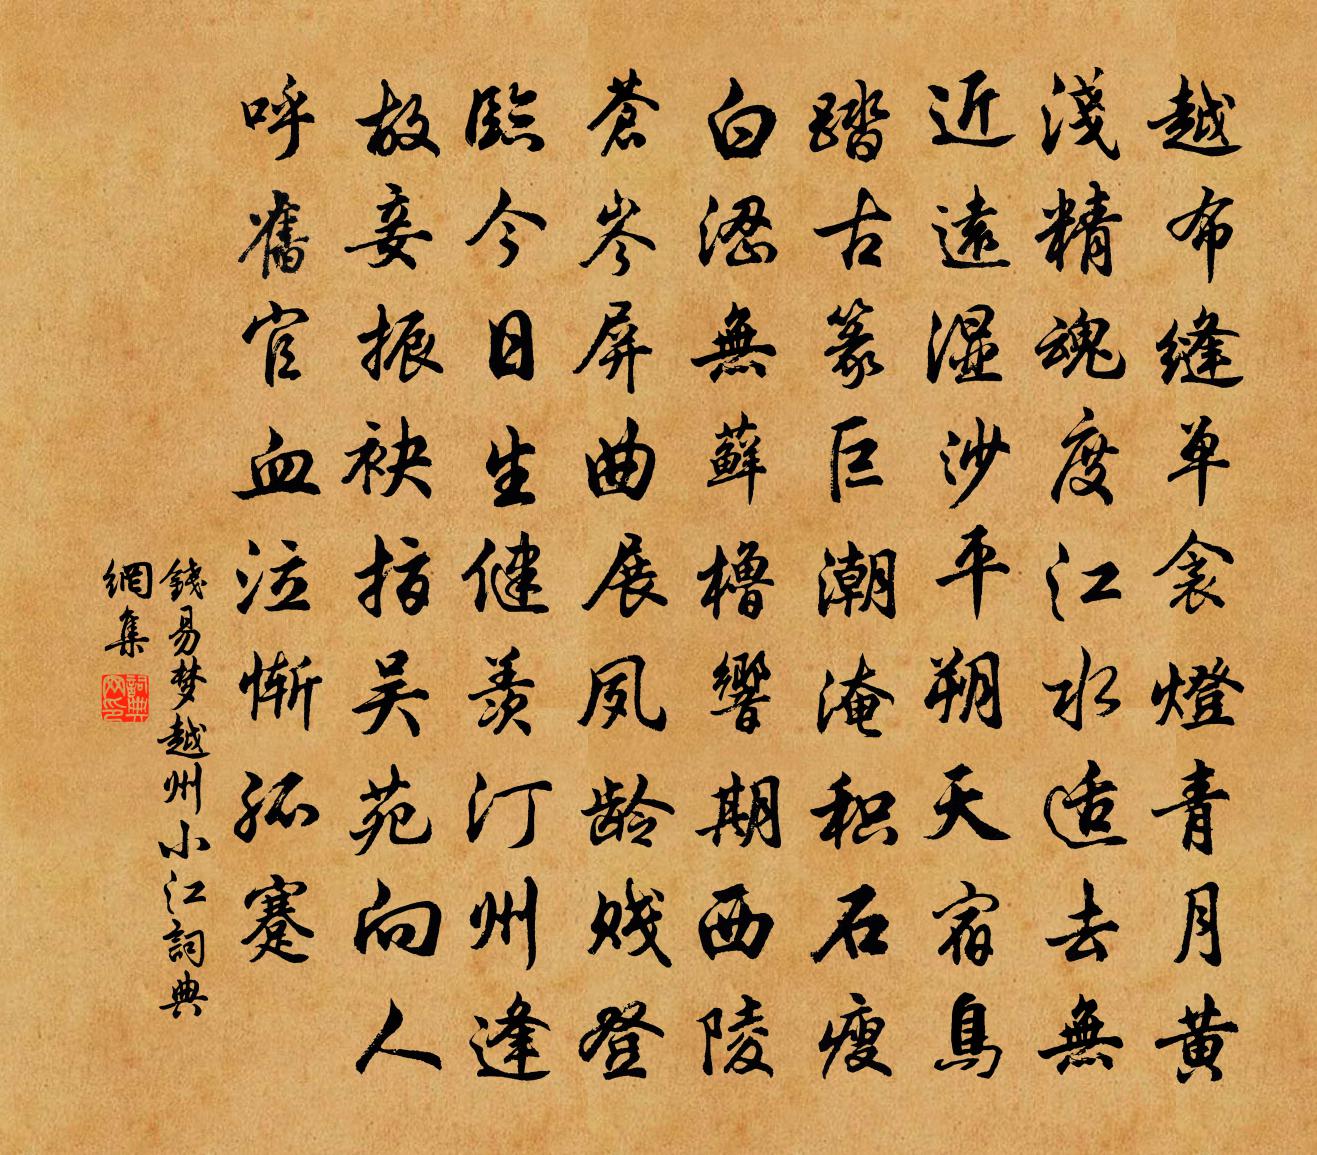 越布缝单衾燈青月黄
淺精魂度江水适去無
近遠湿沙平朔天宿鳥
踏古篆巨潮淹积石瘦
白涩無蘚櫓響期西陵
蒼岑屏曲展夙龄贱登
臨今日生健羡汀州逢
故妾振袂指吴苑向人
呼舊官血泣惭孤蹇
錢易梦越州小江詞典
網集
詞典网印